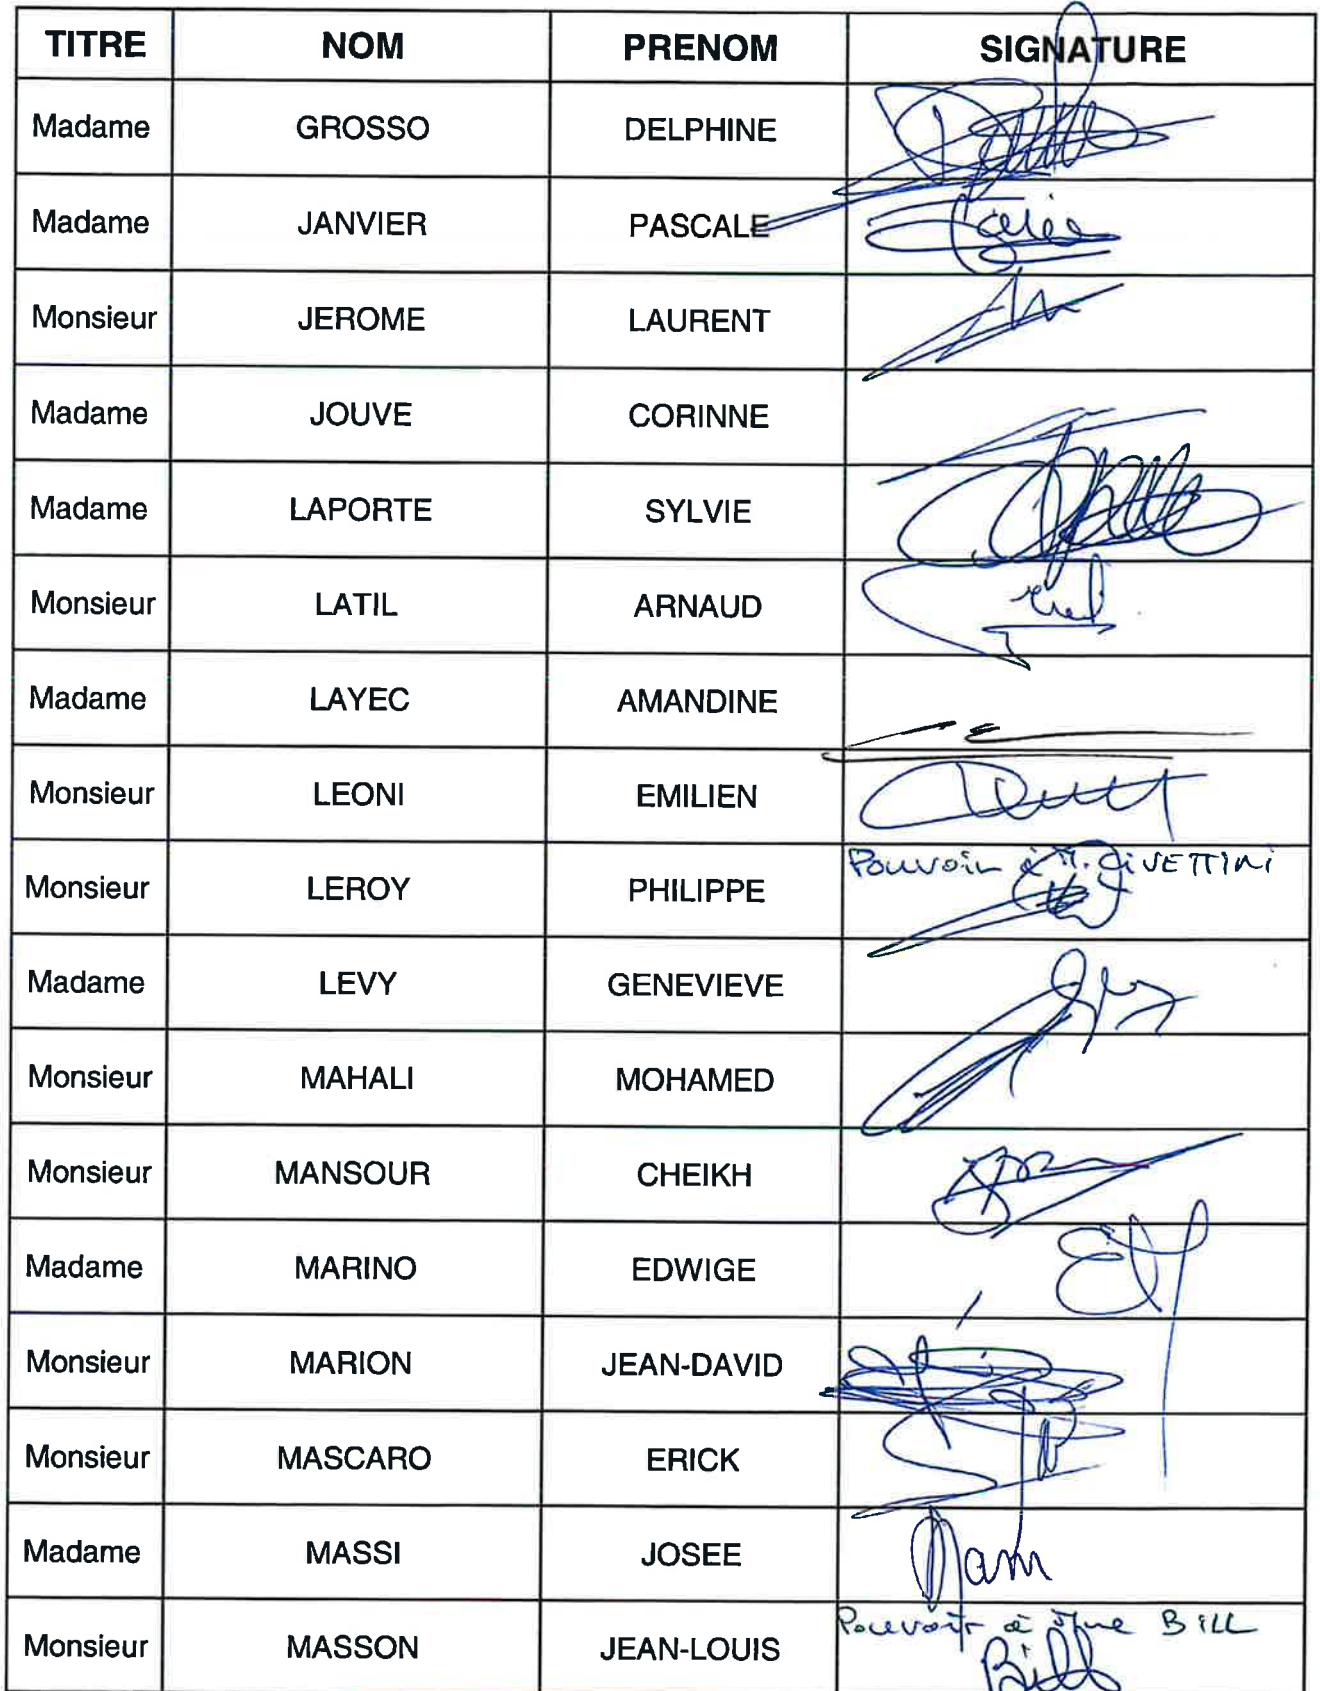 TITRE NOM PRENOM SIGNATURE
Madame GROSSO DELPHINE
Madame JANVIER PASCALE
Monsieur JEROME LAURENT
Madame JOUVE CORINNE
Madame LAPORTE SYLVIE
Monsieur LATIL ARNAUD
Madame LAYEC AMANDINE
Monsieur LEONI EMILIEN
Monsieur LEROY PHILIPPE Pouvoir à M. GIVETTINI
Madame LEVY GENEVIEVE
Monsieur MAHALI MOHAMED
Monsieur MANSOUR CHEIKH
Madame MARINO EDWIGE
Monsieur MARION JEAN-DAVID
Monsieur MASCARO ERICK
Madame MASSI JOSEE
Monsieur MASSON JEAN-LOUIS Pouvoir à Mme BILL
Bill